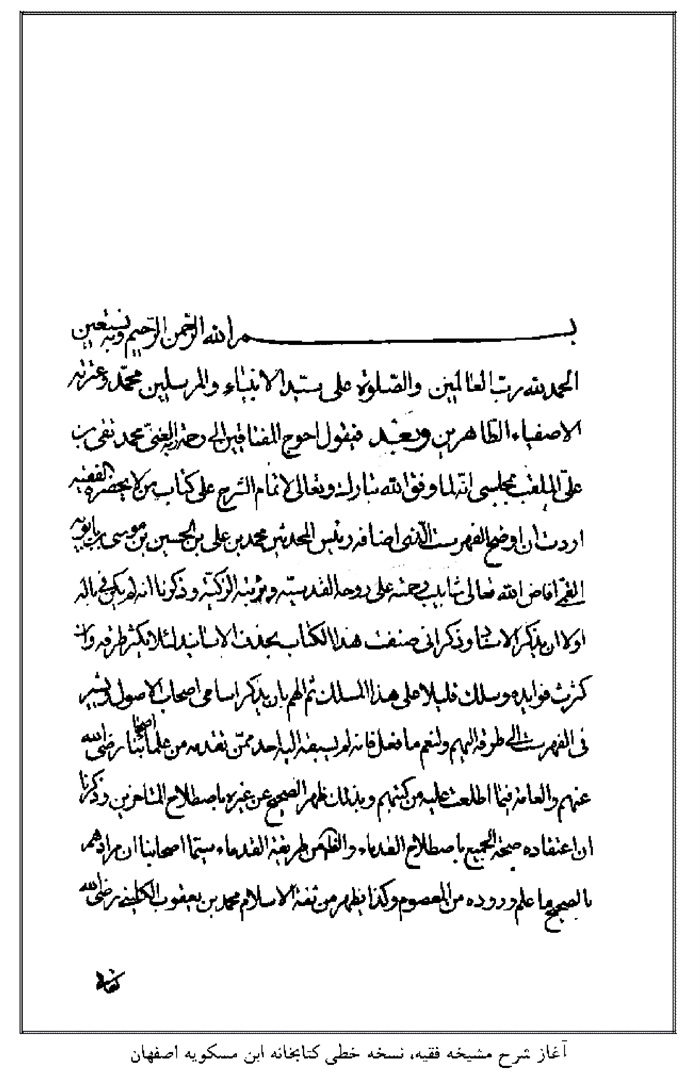 بسم الله الرحمن الرحيم وبه نستعين
الحمد لله رب العالمين والصلوة على سيد الانبياء والمرسلين محمد وعترته
الاصفياء الطاهرين وبعد فيقول احوج المفتاقين الى رحمة ربه الغنى محمد تقى بن
على الملقب بمجلسى انه لما وفق الله تبارك وتعالى لاتمام الشرح على كتاب من لا يحضره الفقيه
اردت ان اوضح الفهرست الذى اضافه رئيس المحدثين محمد بن على بن الحسين بن موسى بن بابويه
القمى افاض الله تعالى شابيب رحمته على روحه القدسية وتربته الزكية وذكرنا انه لم يكن فى باله
اولا ان يذكر الاسناد وذكر انى صنفت هذا الكتاب بحذف الاسانيد لئلا يكثر طرقه وان
كثرت فوايده وسلك قليلا على هذا المسلك ثم الهم بان يذكر اسامى اصحاب الاصول ويشير
فى الفهرست الى طرقه اليهم ولنعم ما فعل فانه لم يسبقه اليه احد ممن تقدمه من علمائنا رضى الله
عنهم والعامة فيما اطلعت عليه من كتبهم وبذلك ظهر الصحيح عن غيره باصطلاح المتاخرين وذكرنا
ان اعتقاده صحة الجميع باصطلاح القدماء والظاهر من طريقة القدماء سيما اصحابنا ان مرادهم
بالصحيح ما علم وروده من المعصوم وكذا يظهر من ثقة الاسلام محمد بن يعقوب الكلينى رضى الله
آغاز شرح مشيخه فقيه، نسخه خطى كتابخانه ابن مسكويه اصفهان